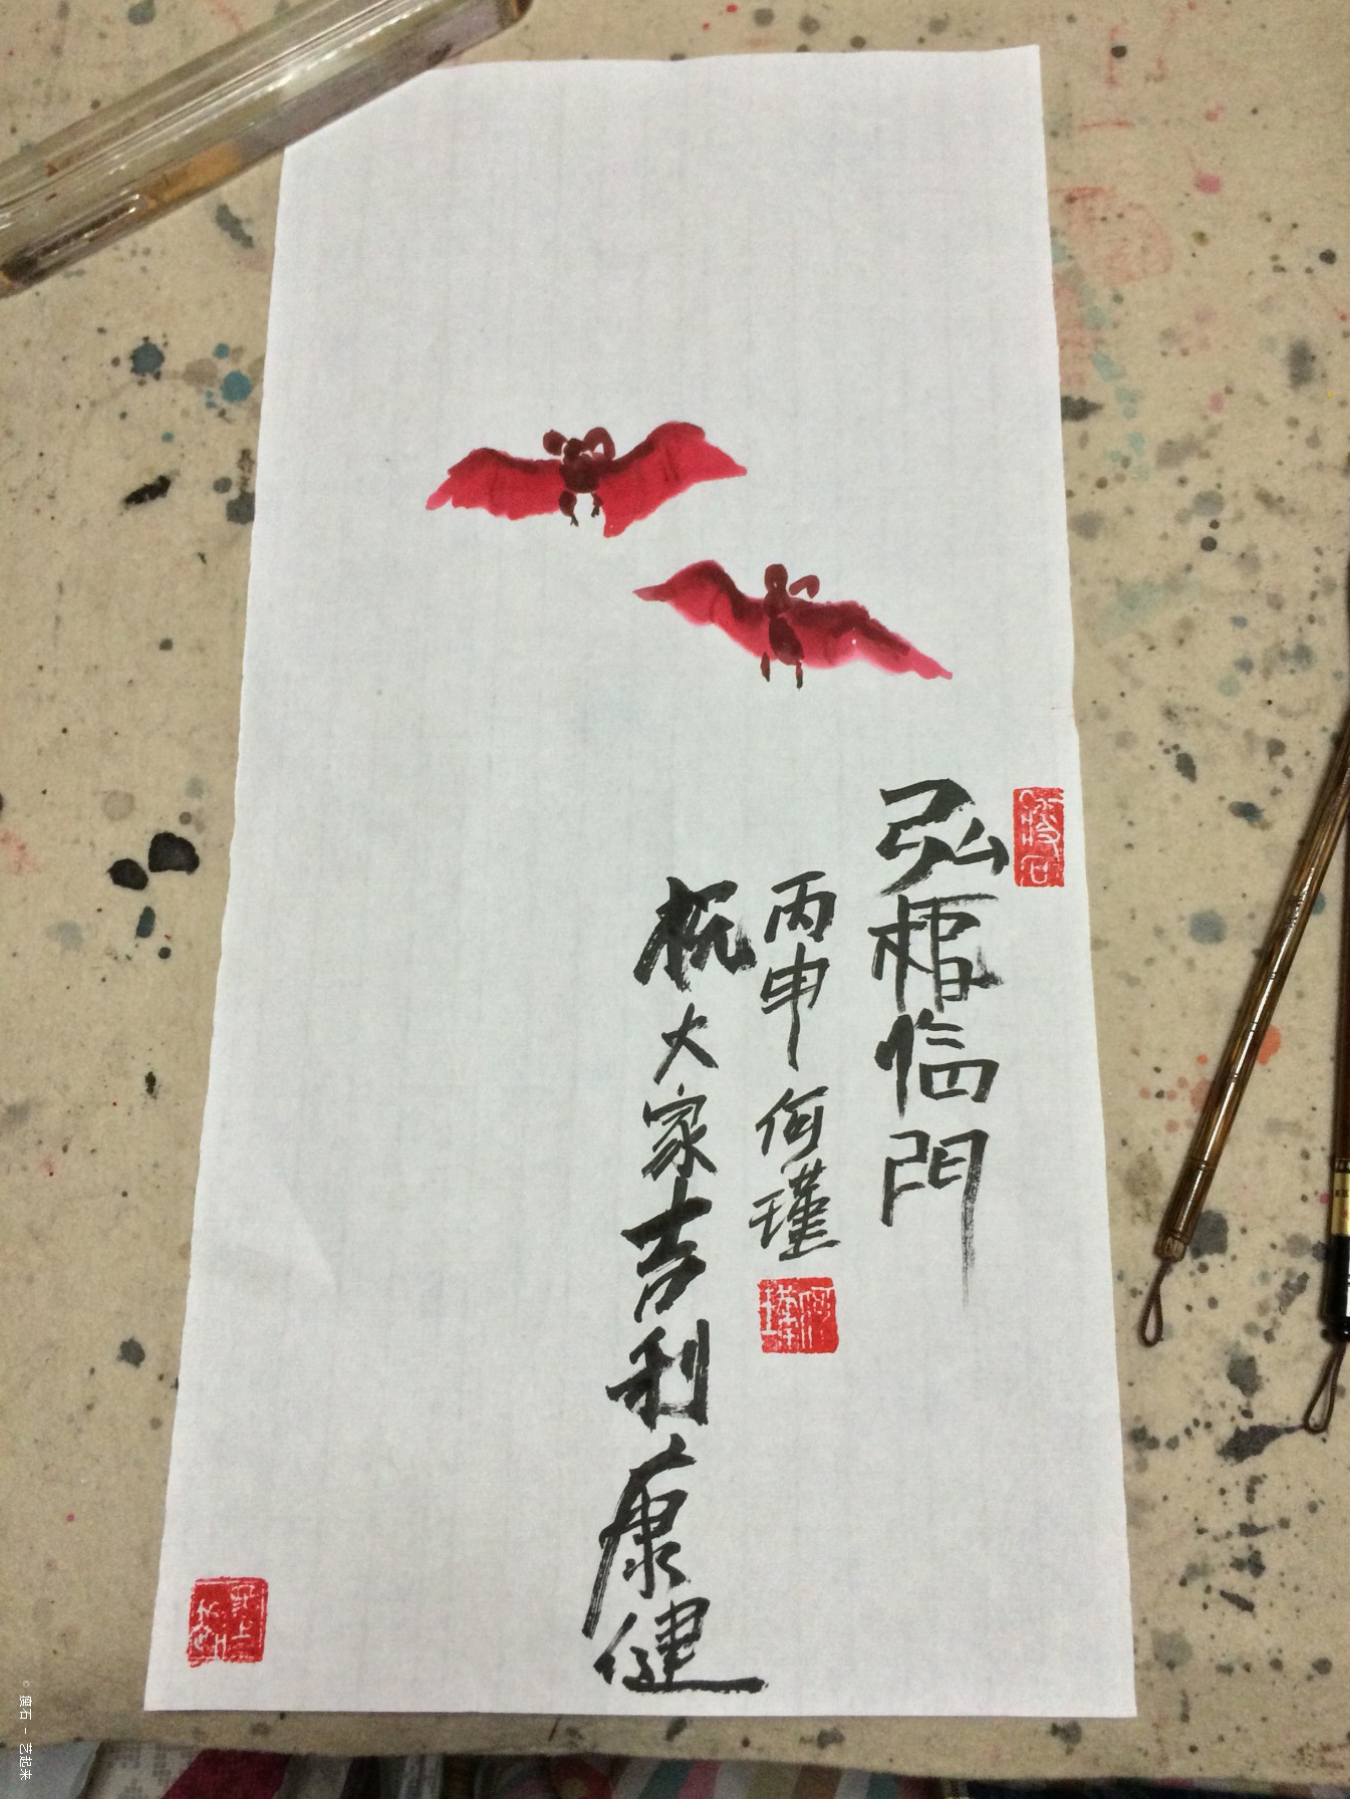 弘福临門
丙申 何瑾
祝大家吉利康健
何瑾
© 璞石 - 艺起来